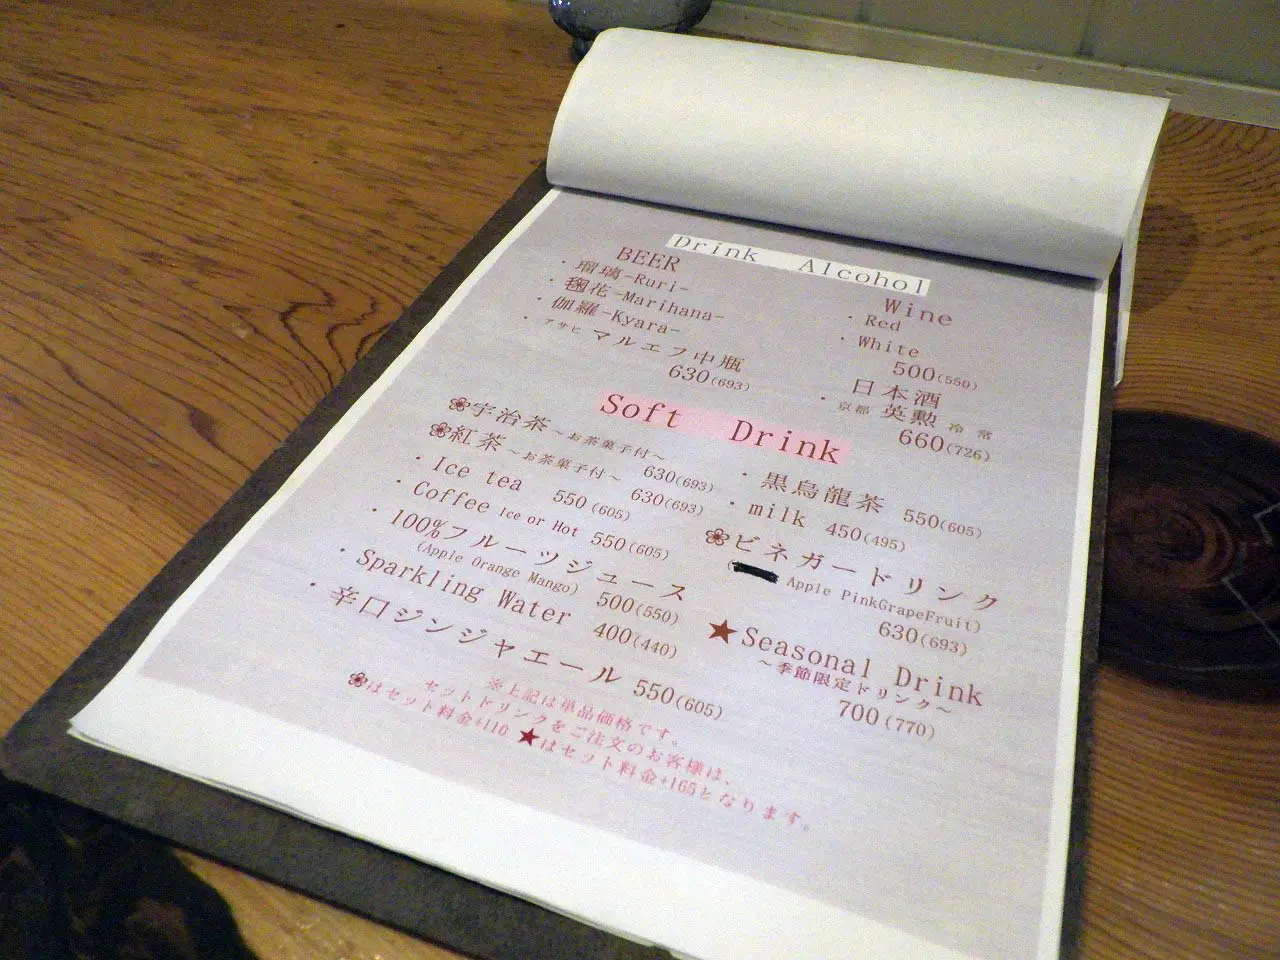 Drink Alcohol
BEER
・瑠璃-Ruri-
・毱花-Marihana-
・伽羅-Kyara-
・アサヒ マルエフ中瓶
630(693)
Wine
・Red
・White
500(550)
日本酒
・京都 英勲 冷 常
660(726)
Soft Drink
❀宇治茶～お茶菓子付～
630(693)
❀紅茶～お茶菓子付～
630(693)
・Ice tea 550(605)
・Coffee Ice or Hot 550(605)
・100%フルーツジュース
(Apple Orange Mango) 500(550)
・Sparkling Water 400(440)
・辛口ジンジャエール 550(605)
・黒烏龍茶 550(605)
・milk 450(495)
❀ビネガードリンク
( Apple PinkGrapeFruit)
630(693)
★Seasonal Drink
～季節限定ドリンク～
700(770)
※上記は単品価格です。
セットドリンクをご注文のお客様は、
❀はセット料金+110 ★はセット料金+165となります。